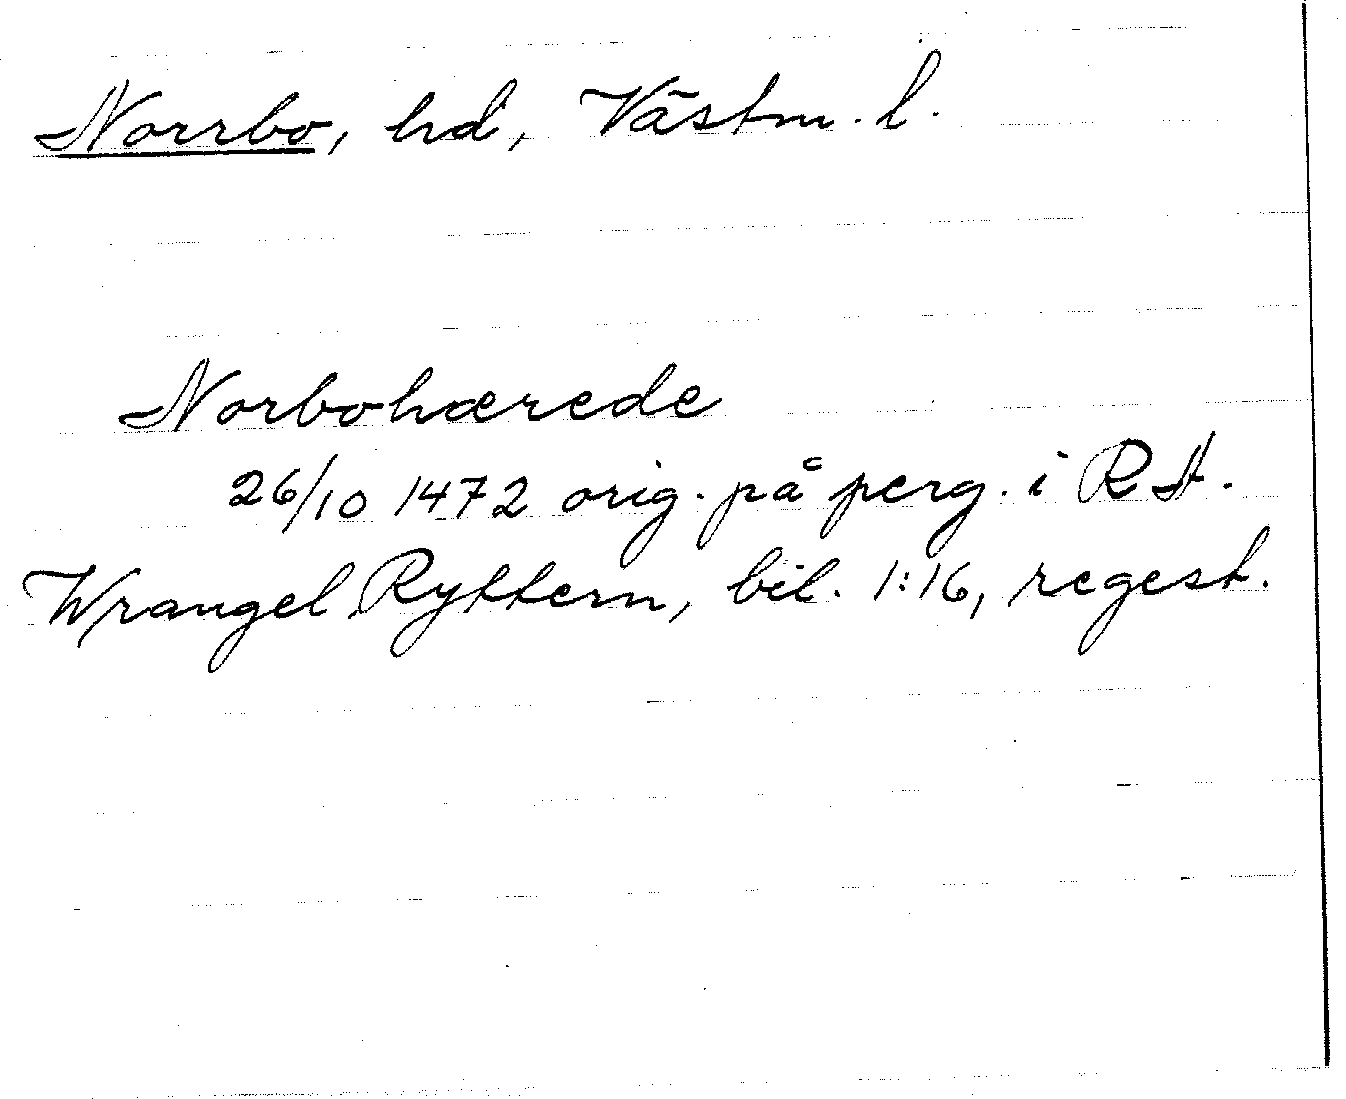 Norrbo, hd, Västm. l.
Norbohærede
26/10 1472 orig. på perg. i RA.
Wrangel Ryttern, bil. 1:16, regest.